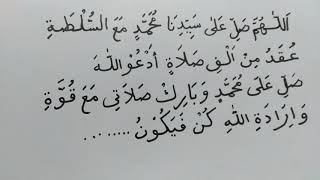 اَللّٰهُمَّ صَلِّ عَلىٰ سَيِّدِنَا مُحَمَّدٍ مَعَ السُّلْطَةِ
عُقَدُ مِنْ اَلْفِ صَلَاةٍ أَدْعُوْ اللّٰهَ
صَلِّ عَلىٰ مُحَمَّدٍ وَبَارِكْ صَلَاتِي مَعَ قُوَّةِ
وَاِرَادَةِ اللّٰهِ كُنْ فَيَكُوْنُ ........